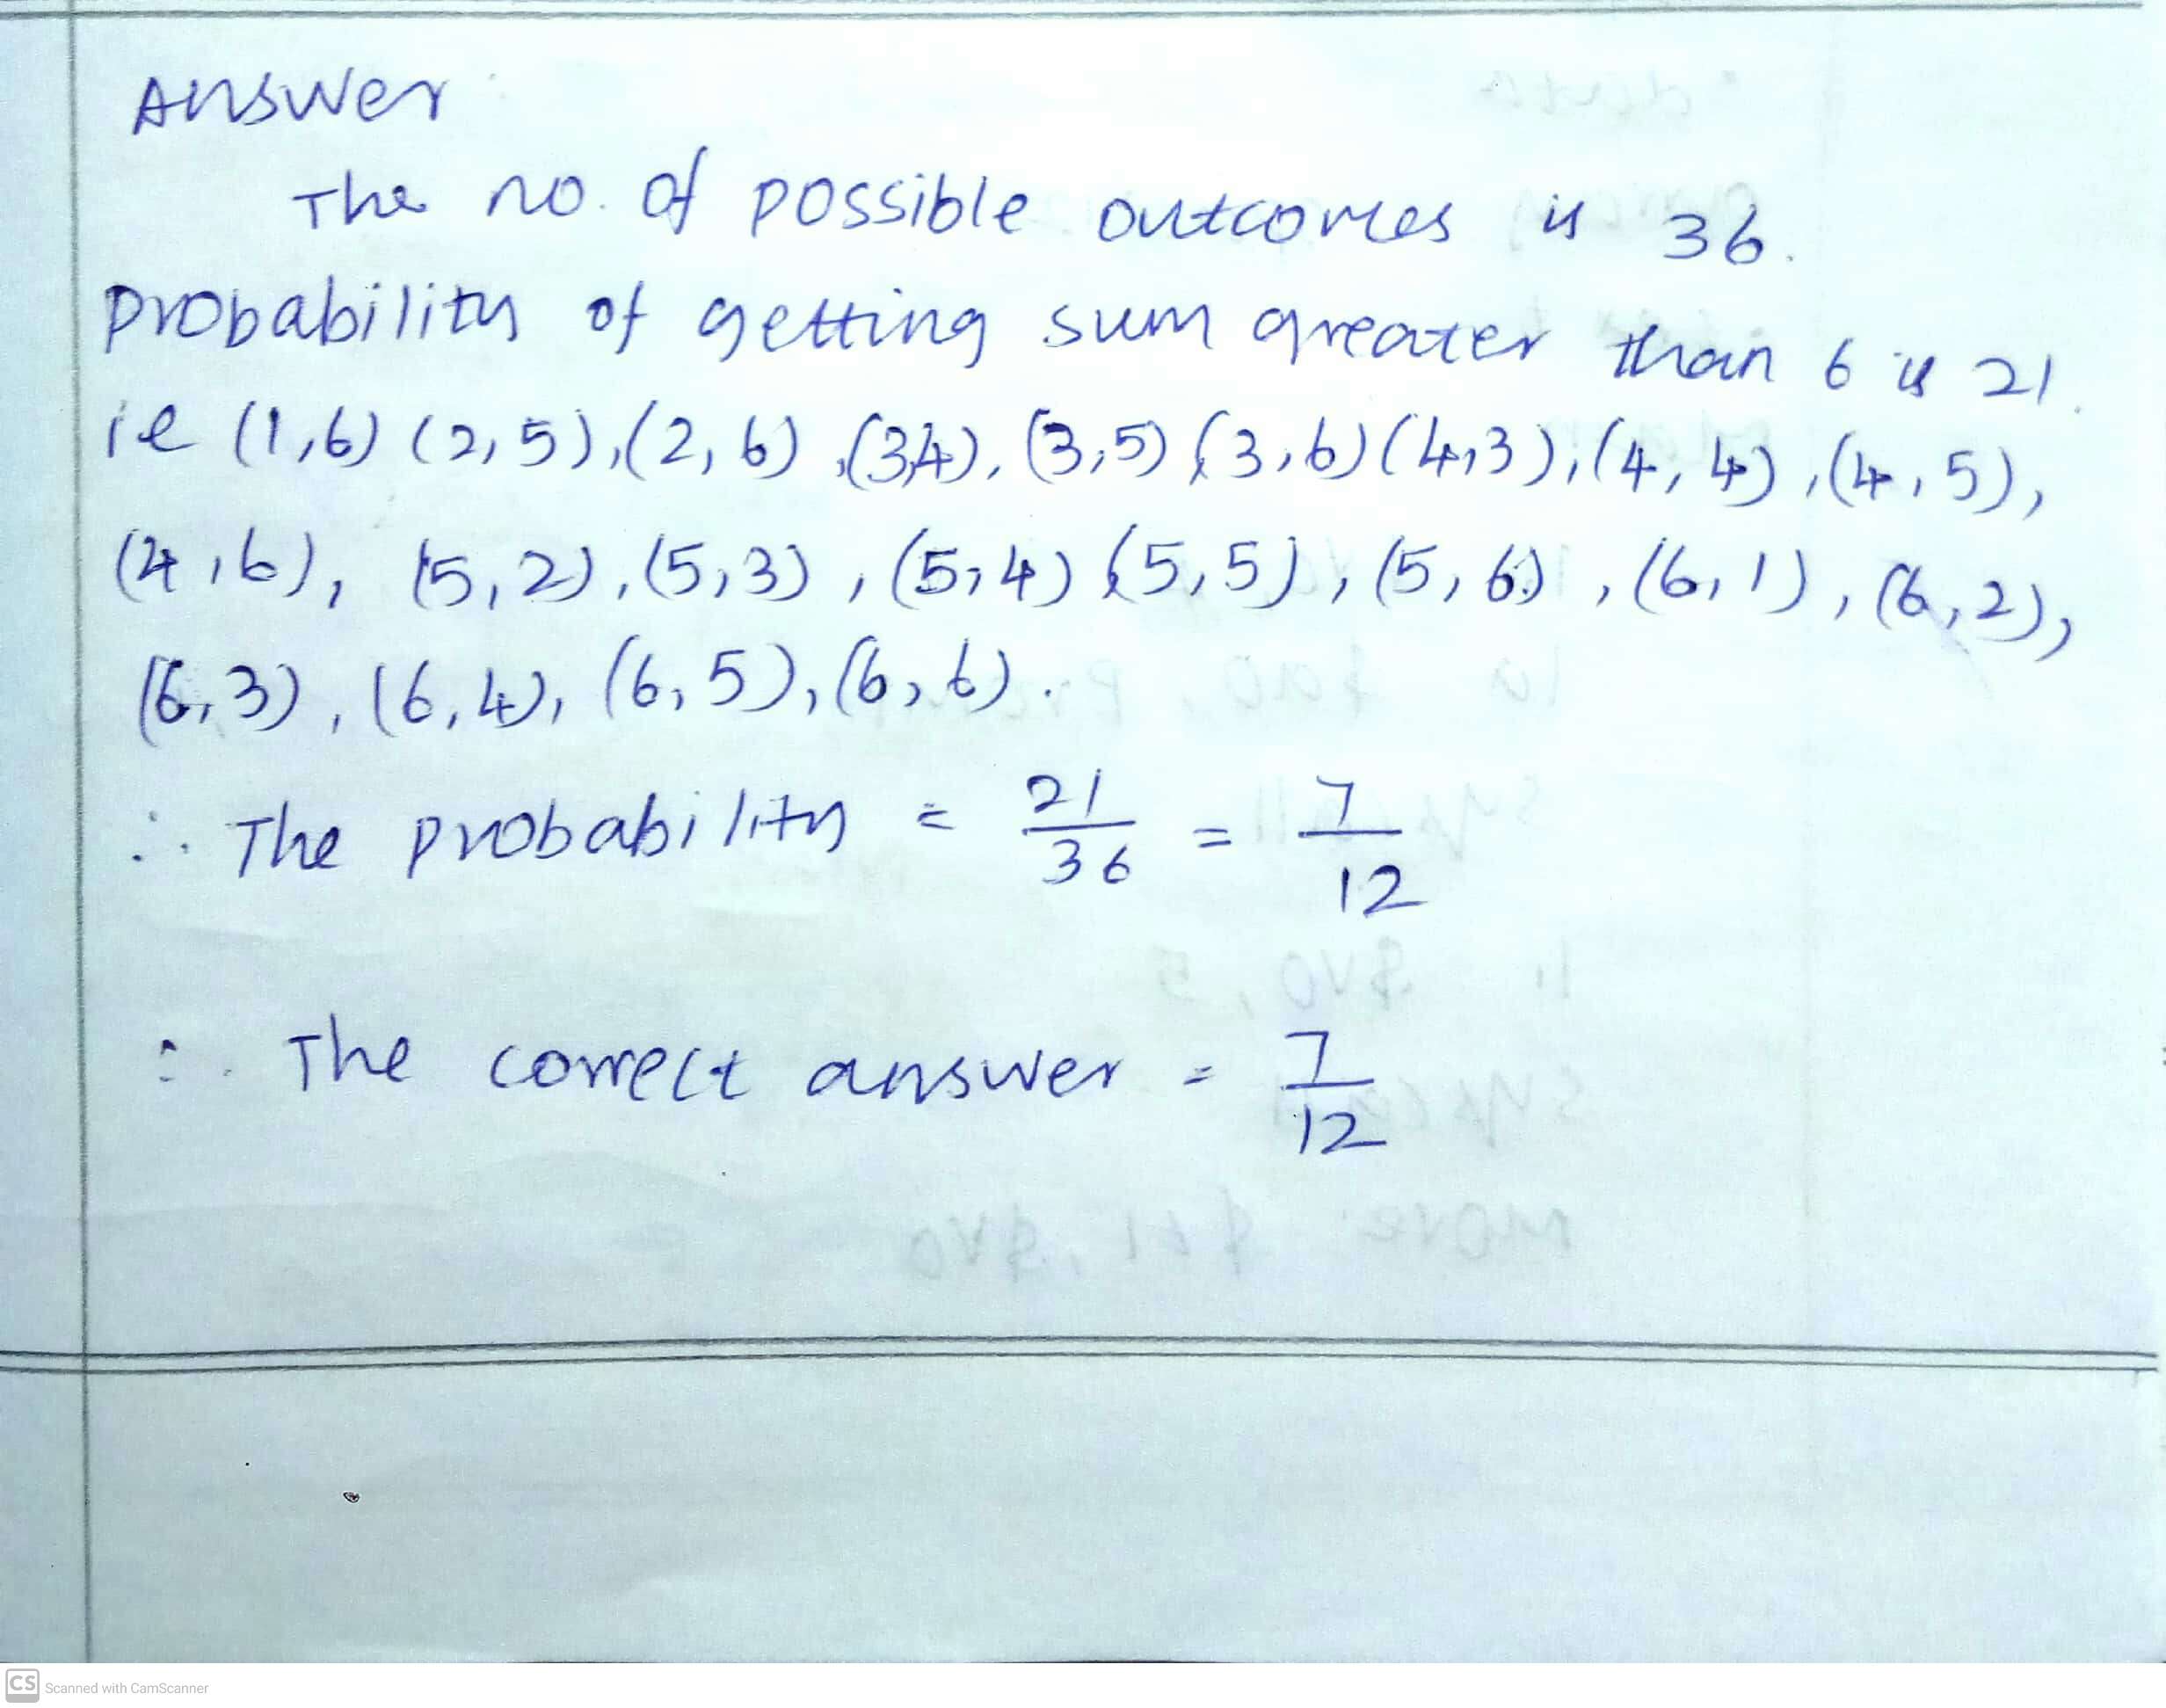 Answer
The no. of possible outcomes is 36.
probability of getting sum greater than 6 is 21.
ie (1,6) (2,5),(2,6),(3,4),(3,5)(3,6)(4,3),(4,4),(4,5),
(4,6), (5,2),(5,3),(5,4)(5,5),(5,6),(6,1),(6,2),
(6,3),(6,4),(6,5),(6,6).
∴ The probability = 21/36 = 7/12
∴ The correct answer = 7/12
CS Scanned with CamScanner